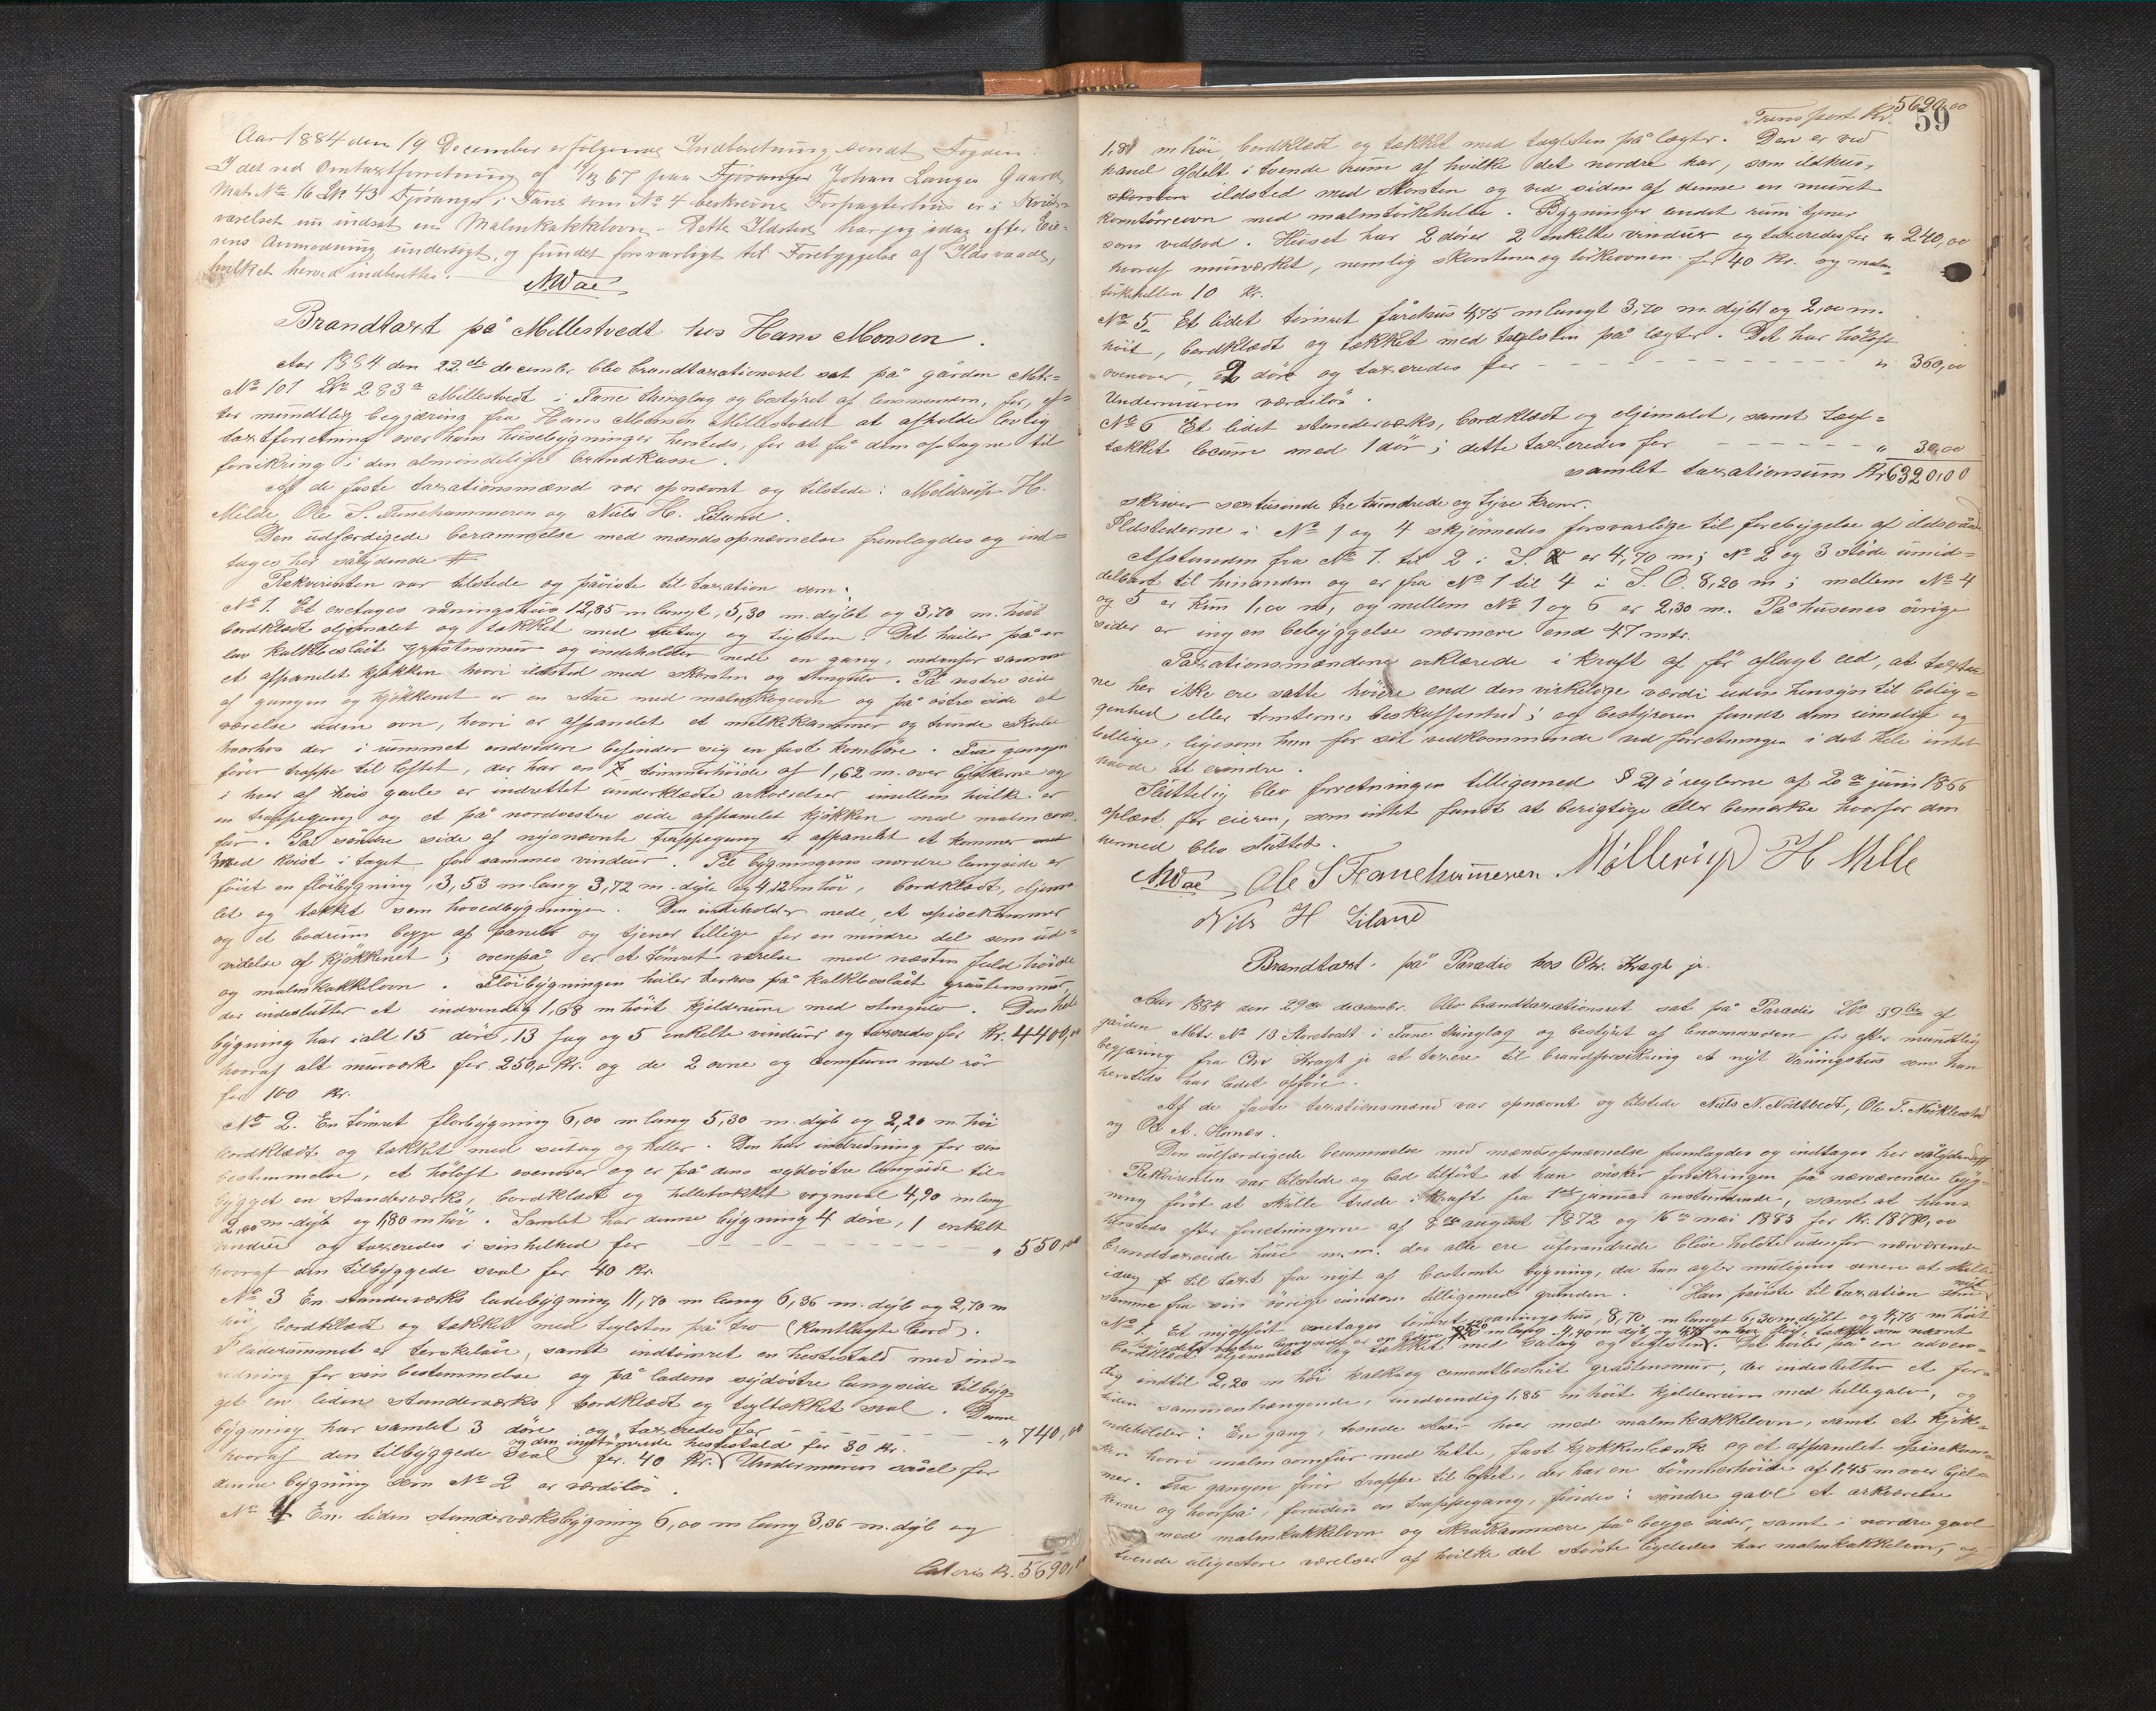 Aar 1884 den 19 December er følgende Indberetning sendt Fogden:
I det ved Omtaxtforretning af 1/13 67 paa Fjøranger Johan Langes Gaard
Matr. No 16 Lb 43 Fjøranger i Fane som No 4 beskrevne Forpagterhus er i
værelset nu indsat en Malmkakkelovn. Dette Ildsted har jeg idag efter Eie-
rens Anmodning undersøgt, og fundet forsvarligt til Forebyggelse af Ildsvaade,
hvilket herved indberettes.
NWae
Brandtaxt på Millestvedt hos Hans Monsen.
Aar 1884 den 22de december blev brandtaxationsret sat på gården Mtr=
No 101 Lb 283a Millestvedt i Fane thinglag og bestyret af lensmanden, for, ef=
ter mundtlig begjæring fra Hans Monsen Millestvedt at afholde lovlig
taxtforretning over hans husebygninger hersteds, for at få dem optagne til
forsikring i den almindelige brandkasse.
Af de faste taxationsmænd var opnævnt og tilstede: Møldrup H.
Milde, Ole S. Fanehammeren og Niels H. Liland.
Den udfærdigede berammelse med mandsopnævnelse fremlagdes og ind=
tages her sålydende #
Rekvirenten var tilstede og påviste til taxation som:
No 1. Et enetages våningshus 12,85 m langt, 5,30 m. dybt og 3,70 m. høit
bordklædt oljemalet og tækket med sutag og teglsten. Det hviler på en
lav kalkbeslåt gråstensmur og indeholder nede en gang, indenfor samme
et afpanelet kjøkken hvori ildsted med skorsten og stengulv. På vestre side
af gangen og kjøkkenet er en stue med malmkogeovn og på østre side et
værelse uden ovn, hvori er afpanelet et melkekammer og tvende skabe
hvorhos der i rummet endvidere befinder sig en fast kornbøre. Fra gangen
fører trappe til loftet, der har en tømmerhøide af 1,62 m. over bjelkerne og
i hver af hvis gavle er indrettet underklædte arkværelser imellem hvilke er
en trappegang og et på nordvestre side afpanelet kjøkken med malmcom-
fur. På søndre side af nysnævnte trappegang er afpanelet et kammer
med kvist i taget for sammes vindue. Til bygningens nordre langside er
føiet en fløibygning, 3,53 m lang 3,72 m. dyb og 4,12 m høi, bordklædt, oljema=
let og tækket som hovedbygningen. Den indeholder nede, et spisekammer
og et bodrum begge af panel og tjener tillige for en mindre del som ud=
videlse af kjøkkenet; ovenpå er et tømret værelse med næsten fuld høide
og malmkakkelovn. Fløibygningen hviler derhos på kalkbeslåt gråstensmur,
der indeslutter et indvendig 1,68 m høit kjelderrum med stengulv. Den hele
bygning har ialt 15 døre, 13 fag og 5 enkelte vinduer og taxeredes for Kr. 4400,00
hvoraf alt murværk for 250,0 Kr. og de 2 ovne og comfuren med rør
for 100 Kr.
No 2. En tømret florbygning 6,00 m lang 5,30 m. dyb og 2,20 m. høi
bordklædt, og tækket med sutag og heller. Den har indredning for sin
bestemmelse, et høloft ovenover og er på dens sydøstre langside til=
bygget en standerværks, bordklædt og helletækket vognsval 4,90 m lang
2,00 m. dyb og 1,80 m høi. Samlet har denne bygning 4 døre, 1 enkelt
vindue og taxeredes i sin helhed for - - - - - - - - - - - " 550,00
hvoraf den tilbyggede sval for 40 Kr.
No 3 En standerværks ladebygning 11,70 m lang 6,36 m. dyb og 2,70 m
høi, bordklædt og tækket med teglsten på tro (kantlagte bord).
I laderummet er terskelåve, samt indtømret en hestestald med ind=
redning for sin bestemmelse og på ladens sydøstre langside tilbyg-
get en liden standerværks, bordklædt og tegltækket sval. Denne
bygning har samlet 3 døre og taxeredes for - - - - - - - " 740,00
og den indtømrede hestestald for 80 Kr.
hvoraf den tilbyggede sval for 40 Kr. Undermuren såvel for
denne bygning som No 2 er værdiløs.
No 4 En liden standerværksbygning 6,00 m lang 3,36 m. dyb og
Lateris Kr. 5690,00
Transport Kr. 5690,00
59
1,80 m høi bordklædt og tækket med taglsten på lægter. Den er ved
panel afdelt i tvende rum af hvilke det nordre har, som ildhus,
ildsted med skorsten og ved siden af denne en muret
korntørreovn med malmtørkehelle. Bygningens andet rum tjener
som vedbod. Huset har 2 dører 2 enkelte vinduer og taxeredes for " 240,00
hvoraf murværket, nemlig skorstenen og tørkeovnen for 40 Kr. og malm-
tørkehellen 10 Kr.
No 5 Et lidet tømret fårehus 4,75 m langt 3,70 m. dybt og 2,00 m.
høit, bordklædt og tækket med taglsten på lægter. Det har høloft
ovenover, 2 døre og taxeredes for - - - - - - - - - - - " 360,00
Undermuren værdiløs.
No 6 Et lidet standerværks, bordklædt og oljemalet, samt tegl=
tækket locum med 1 dør; dette taxeredes for - - - - - - " 30,00
samlet taxationsum Kr 6320,00
skriver sextusinde tre hundrede og tyve kroner.
Ildstederne i No 1 og 4 skjønnedes forsvarlige til forebygelse af ildsvåde
Afstanden fra No 1. til 2 i S. er 4,70 m; No 2 og 3 støde umid=
delbart til hinanden og er fra No 1 til 4 i S. O. 8,20 m; mellem No 4
og 5 er kun 1,00 m, og mellem No 1 og 6 er 2,30 m. På husenes øvrige
sider er ingen bebyggelse nærmere end 47 mtr.
Taxationsmændene erklærede i kraft af før aflagt eed, at taxter
ne her ikke ere satte høiere end den virkelige værdi uden hensyn til belig=
genhed eller tomternes beskaffenhed; og bestyreren fandt dem rimelige og
billige, ligesom han for sit vedkommende ved forretningen i det hele intet
havde at erindre.
Sluttelig blev forretningen tilligemed § 21 i reglerne af 20de juni 1866
oplæst for eieren, som intet fandt at berigtige eller bemærke hvorfor den
hermed blev sluttet.
NWae Ole S Fanehammeren. Møllerup H Mille
Nils H Liland
Brandtaxt på Paradis hos Chr. Kragh jr.
Aar 1884 den 29de decembr. blev brandtaxationsret sat på Paradis Lb 39 af
gården Mtr No 13 Storetvedt i Fane thinglag og bestyret af lensmanden for efter mundtlig
begjæring fra Chr Kragh jr at taxere til brandforsikring et nyt Våningshus som han
hersteds har ladet opføre.
Af de faste taxationsmænd var opnævnt og tilstede Niels N. Nattvedt, Ole T. Møklestad
og Ole A. Hornæs.
Den udfærdigede berammelse med mændsopnævnelse fremlagdes og indtages her sålydende
Rekvirenten var tilstede og bad tilført at han ønsker forsikringen på nærværende byg-
ning først at skulle træde i kraft fra 1ste januar anstundende, samt at hans
hersteds efter forretningerne af 8de august 1872 og 16de mai 1883 for Kr. 18780,00
brandtaxerede huse m.m. der alle ere uforandrede blive holdte udenfor nærværende
idag til taxt fra nyt af bestemte bygning, da han agter muligens senere at skille
samme fra sin øvrige eiendom tilligemed grunden. Han påviste til taxation som
nyt
No 1. Et nyopført enetages tømret våningshus, 8,70 m langt 6,30 m. dybt og 4,75 m høit
bordklædt oljemalet og tækket med sutag og teglsten. Det hviler på en udven-
dig indtil 2,20 m høi kalk og cementbeslåt gråstensmur, der indeslutter et for-
tiden sammenhængende, indvendig 1,85 m høit kjelderrum med hellegulv, og
indeholder: En gang, tvende stuer hver med malmkakkelovn, samt et kjøk-
ken hvori malmcomfur med hætte, fast kjøkkenbænk og et afpanelet spisekam-
mer. Fra gangen fører trappe til loftet, der har en tømmerhøide af 1,45 m over bjel-
kerne og hvorpå, foruden en trappegang, findes: søndre gavl et arkværelse
med malmkakkelovn og skråkammere på begge sider, samt i nordre gavl
tvende uligestore værelser af hvilke det største ligeledes har malmkakkelovn, og